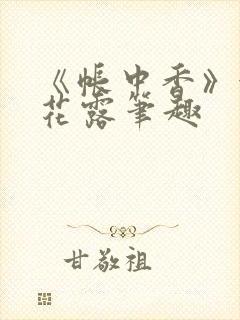 《帐中香》
花露笔趣
甘敬祖